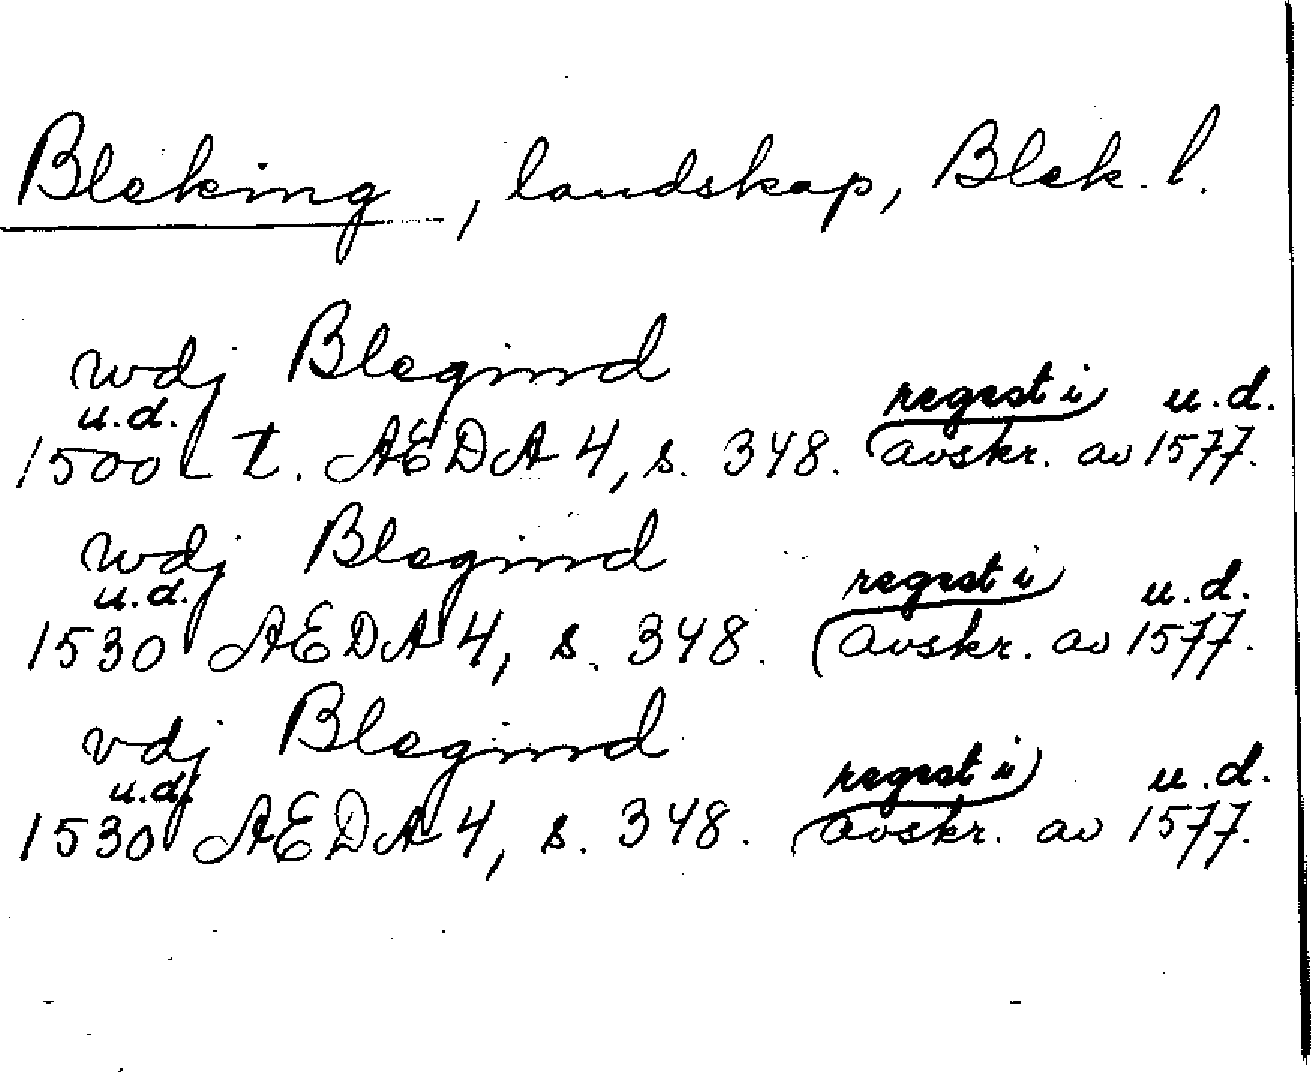 Bleking, landskap, Blek. l.
wdj Blegind
u.d. regest i u.d.
1500 t. AEDA 4, s. 348. avskr. av 1577.
wdj Blegind
u.d. regest i u.d.
1530 AEDA 4, s. 348. avskr. av 1577.
vdj Blegind
u.d. regest i u.d.
1530 AEDA 4, s. 348. avskr. av 1577.